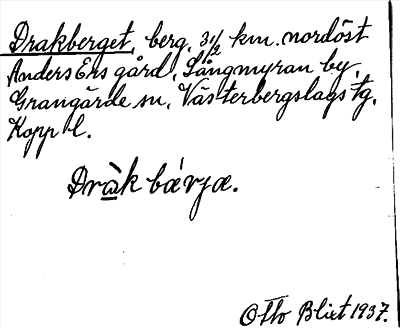 Drakberget, berg, 3 1/2 km. nordöst
Anders Ers gård, Långmyran by,
Grangärde sn, Västerbergslags tg,
Kopp l.
Dràk bǽrjæ.
Otto Blixt 1937.